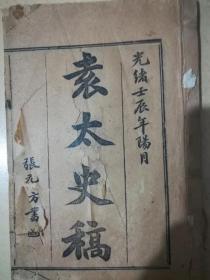 光緒壬辰年陽月
袁太史稿
張元方書